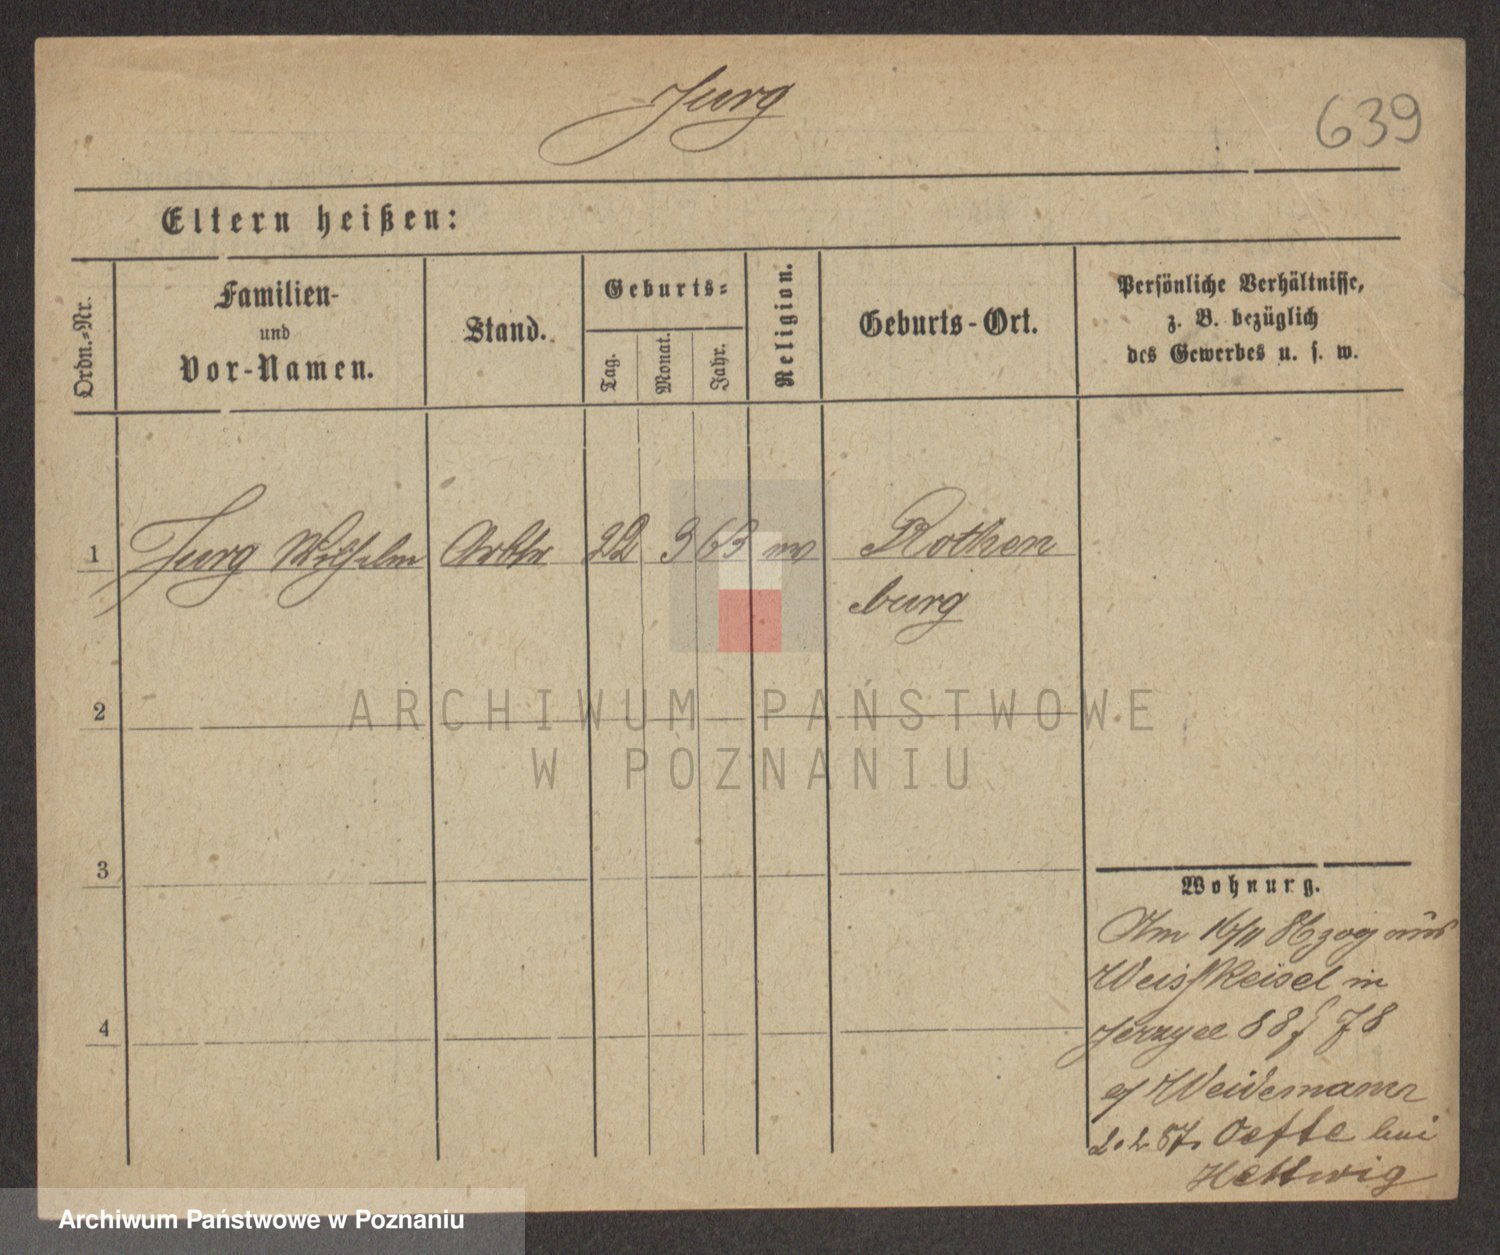 Jurg
639
Eltern heißen:
Ordn.-Nr.
Familien-
und
Vor-Namen.
Stand.
Geburts-
Tag.
Monat.
Jahr.
Religion.
Geburts-Ort.
Persönliche Verhältnisse,
z. B. bezüglich
des Gewerbes u. s. w.
1 Jurg Wilhelm Arbtr 22 9 63 Rothen
burg
2
3
4
Wohnurg.
Am 16/11 86 zog aus
Weiskeisel in
88 78
Weidemann
2.2 87. Oefte bei
Hettwig
ARCHIWUM PAŃSTWOWE
W POZNANIU
Archiwum Państwowe w Poznaniu